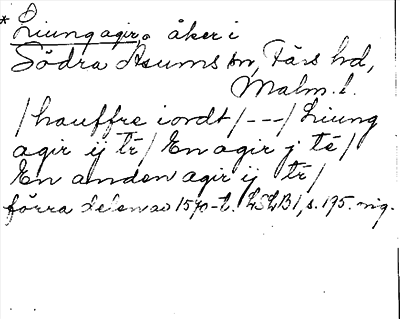 * Liungagir, åker i
Södra Åsums sn, Färs hd,
Malm. l.
/hauffre iordt/---/Liung
agir ij tr̄/ En agir j tē/
En anden agir ij tr̄/
förra delen av 1570-t. LSLB1, s. 195.